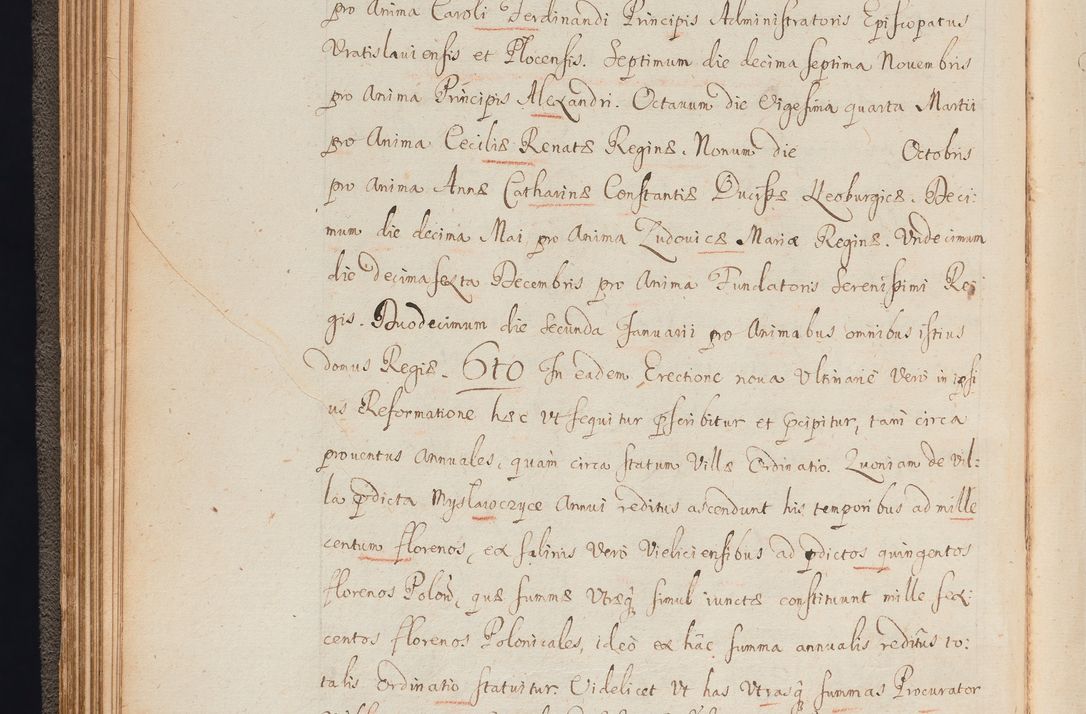 pro Anima Caroli Ferdinandi Principis Administratoris Episcopatus
Vratislauiensis et Plocensis. Septimum die decima septima Nouembris
pro Anima Principis Alexandri. Octauum die Vigesima quarta Martii
pro Anima Ceciliæ Renatæ Reginæ. Nonum die Octobris
pro Anima Annæ Catharinæ Constantiæ Ducissæ Neoburgicæ. Deci:
mum die decima Mai pro Anima Ludouicæ Mariæ Reginæ. Vndecimum
die decima sexta Decembris pro Anima Fundatoris Serenissimi Re
gis. Duodecimum die Secunda Januarii pro Animabus omnibus istius
domus Regiæ. 6to In eadem Erectione noua Vltimarie Vero in ipsi
us Reformatione hæc vt sequitur pscribitur et pcipitur, tam circa
prouentus Annuales, quam circa statum Villæ Ordinatio. Quoniam de Vil:
la pdicta Mysławczyce Annui reditus ascendunt his temporibus ad mille
centum florenos, ex salinis Vero Vieliciensibus ad pdictos quingentos
florenos Polon, quæ summæ Vtræq simul iunctæ constituunt mille sex:
centos florenos Polonicales, ideo ex hac summa annualis reditus to:
talis Ordinatio statuitur. Videlicet Vt has Vtrasq summas Procurator